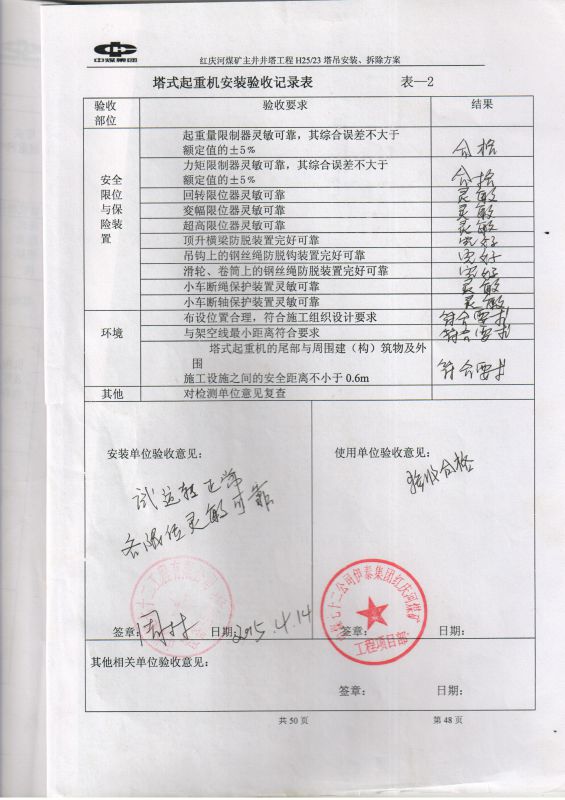 中煤集团
红庆河煤矿主井井塔工程 H25/23 塔吊安装、拆除方案
塔式起重机安装验收记录表 表—2
验收部位 验收要求 结果
安全限位与保险装置
起重量限制器灵敏可靠，其综合误差不大于
额定值的±5% 合格
力矩限制器灵敏可靠，其综合误差不大于
额定值的±5% 合格
回转限位器灵敏可靠 灵敏
变幅限位器灵敏可靠 灵敏
超高限位器灵敏可靠 灵敏
顶升横梁防脱装置完好可靠 完好
吊钩上的钢丝绳防脱钩装置完好可靠 完好
滑轮、卷筒上的钢丝绳防脱装置完好可靠 完好
小车断绳保护装置灵敏可靠 灵敏
小车断轴保护装置灵敏可靠 灵敏
环境
布设位置合理，符合施工组织设计要求 符合要求
与架空线最小距离符合要求 符合要求
塔式起重机的尾部与周围建（构）筑物及外
围
施工设施之间的安全距离不小于 0.6m 符合要求
其他 对检测单位意见复查
安装单位验收意见：
试运转正常
各限位灵敏可靠
签章： 日期：2015.4.14
使用单位验收意见：
验收合格
七十二公司伊泰集团红庆河煤矿
工程项目部
签章： 日期：
其他相关单位验收意见：
签章： 日期：
共 50 页 第 48 页